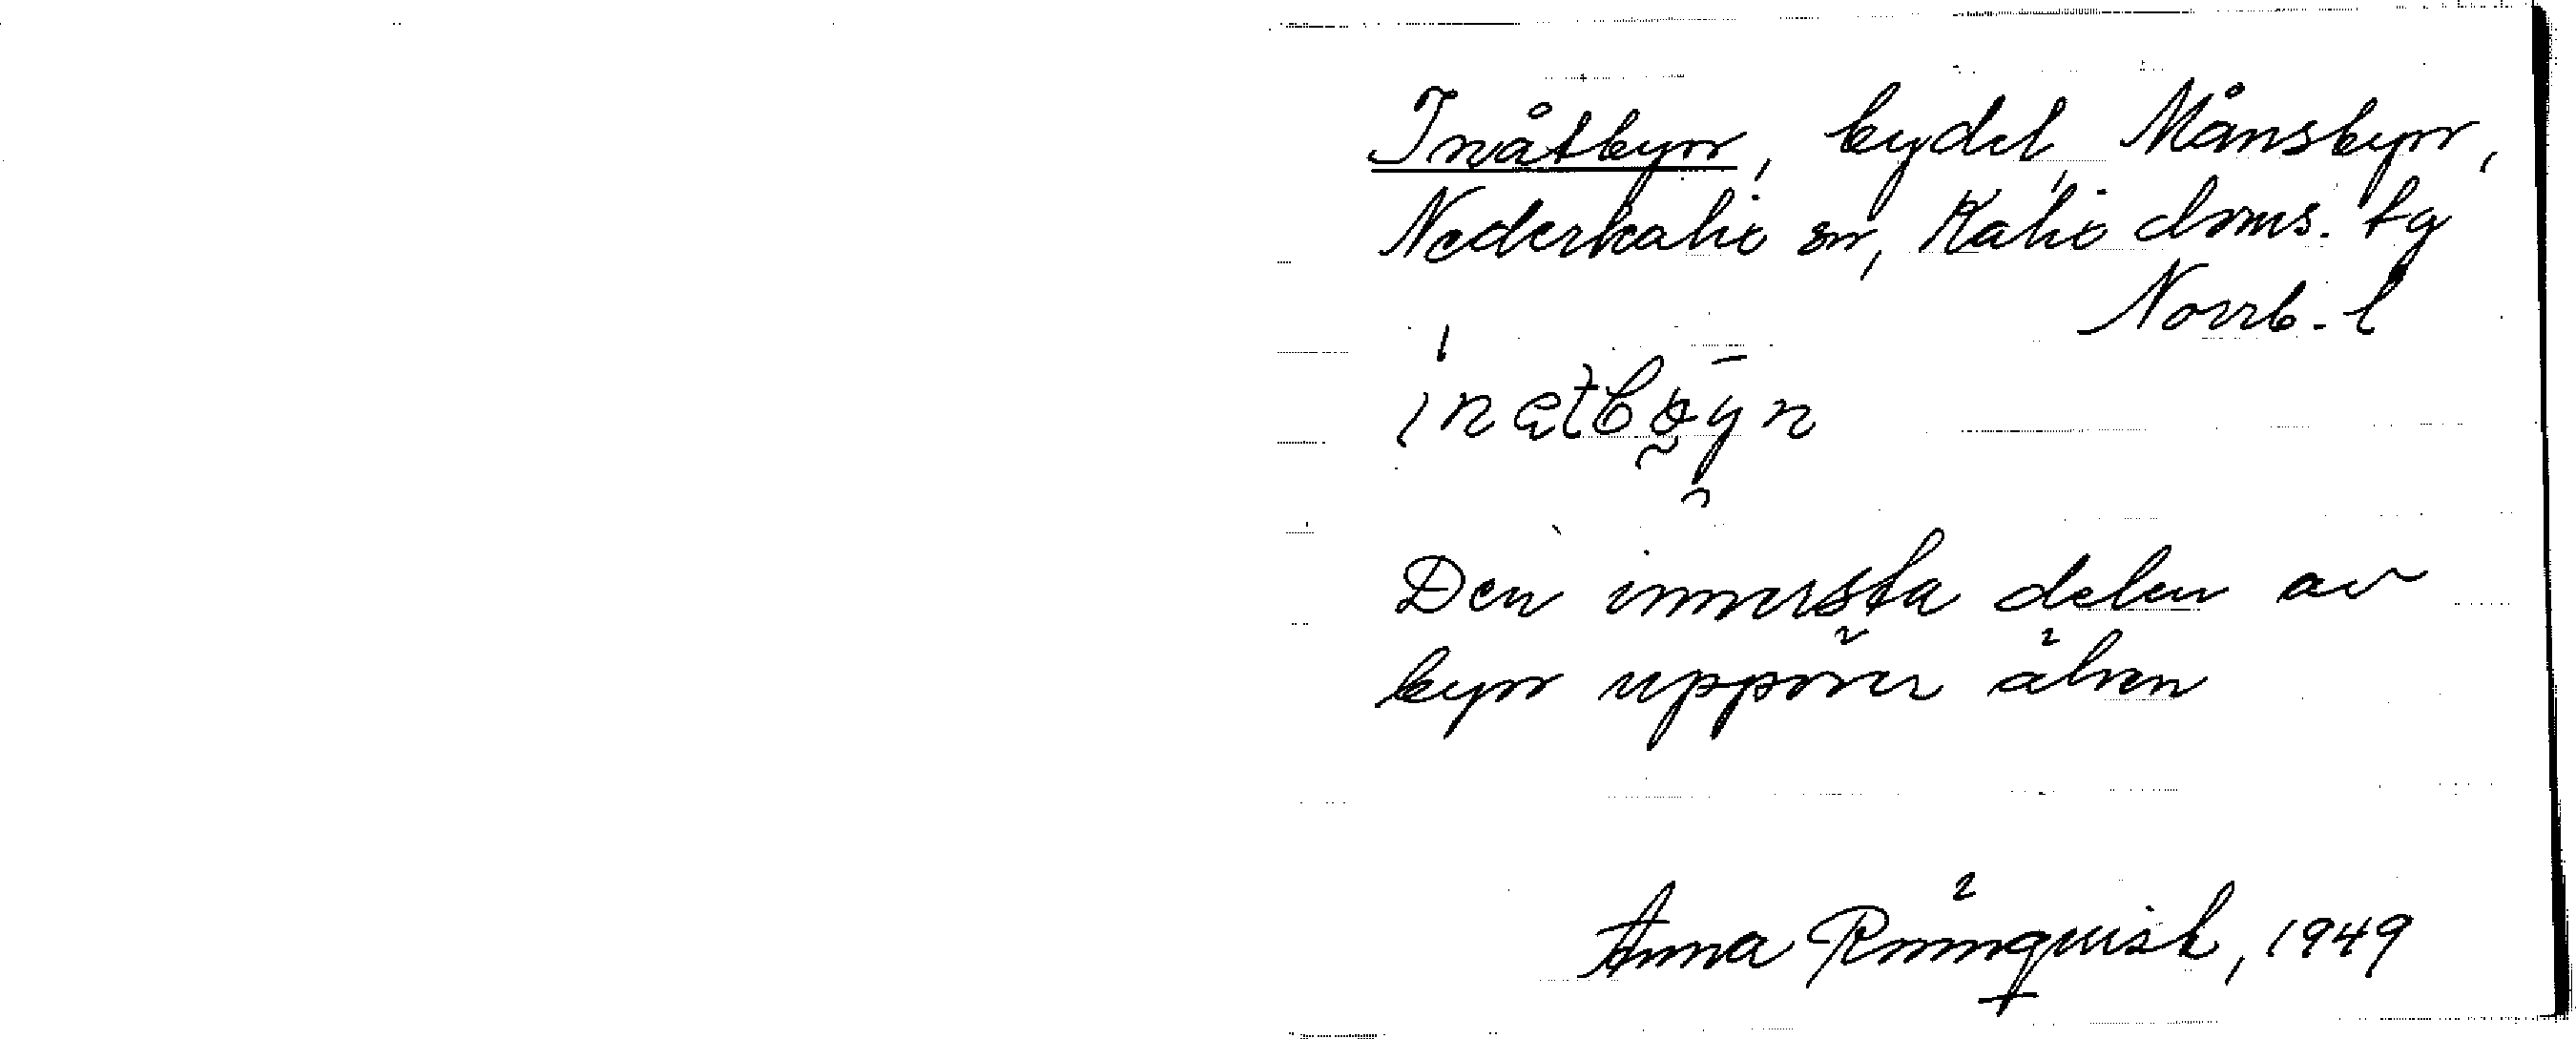 Inåtbyn, bydel, Månsbyn,
Nederkalix sn, Kalix doms. tg
Norrb. l
Den innersta delen av
byn uppöver älven
Anna Rönnquist, 1949